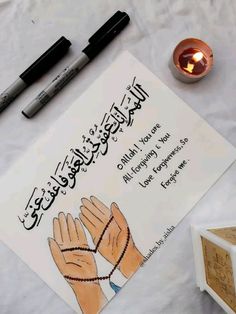 اللهم إنك عفو تحب العفو فاعف عني
O Allah! You are
All Forgiving & You
Love Forgiveness, So
Forgive me.
@shades_by_aisha